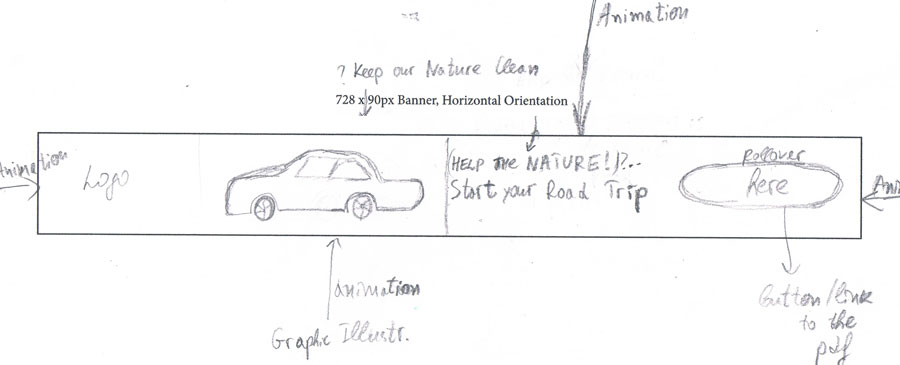 Animation
? Keep our Nature Clean
728 x 90px Banner, Horizontal Orientation
Animation
Logo
(HELP the NATURE!)?..
Start your Road Trip
Rollover
here
Ani
animation
Graphic Illustr.
button/link
to the
pdf